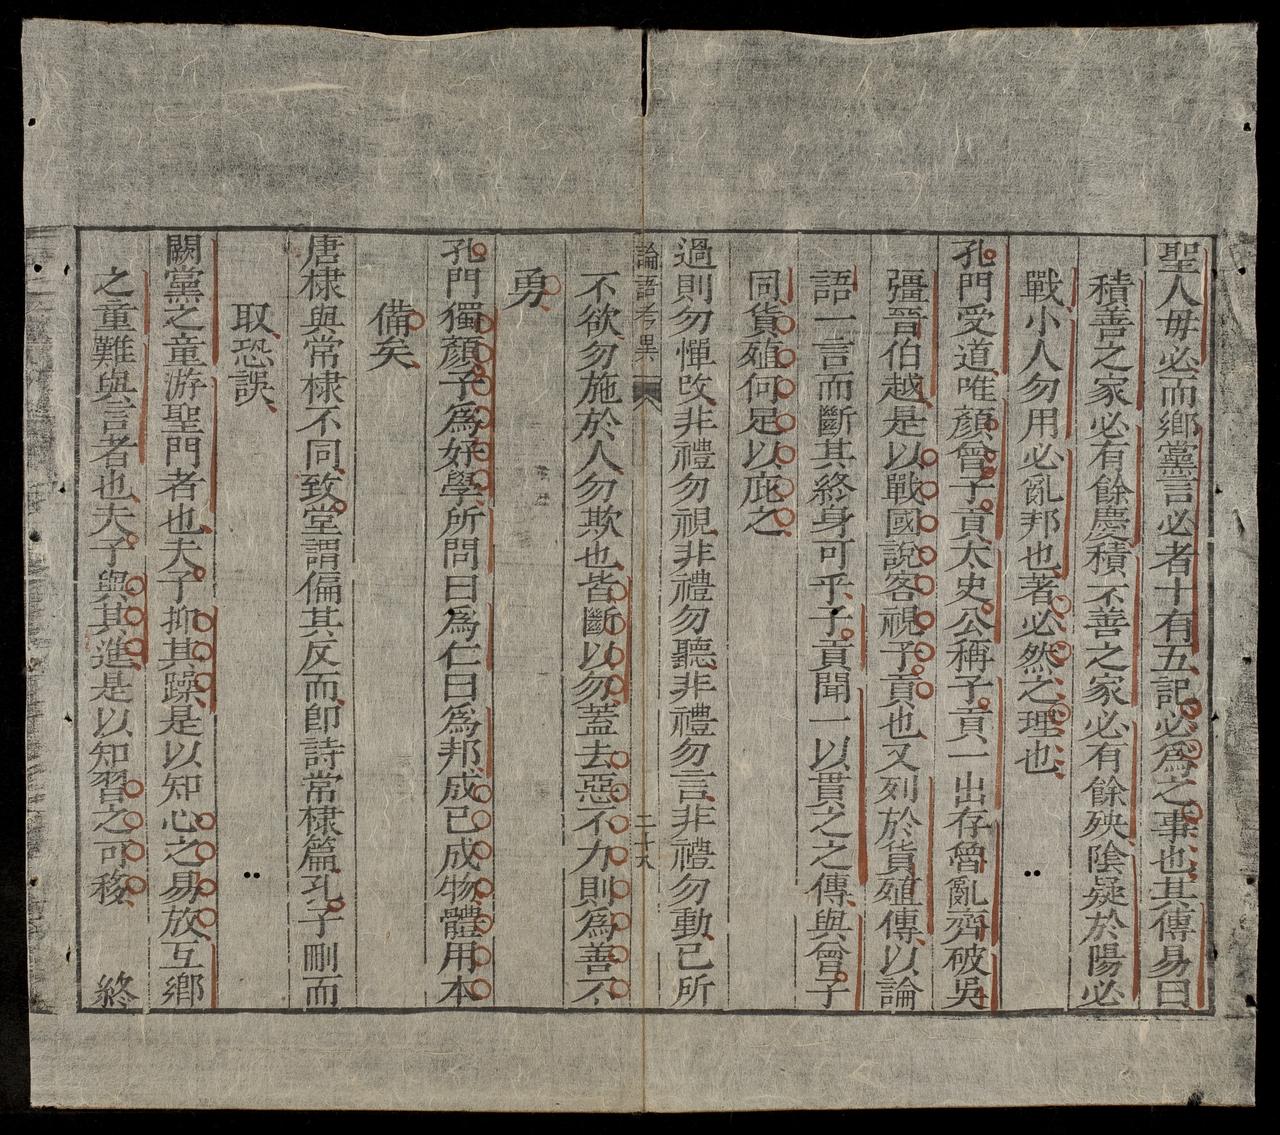 聖人毋必而鄉黨言必者十有五記必爲之事也其傳易曰
積善之家必有餘慶積不善之家必有餘殃陰疑於陽必
戰小人勿用必亂邦也著必然之理也
孔門受道唯顏曾子貢太史公稱子貢一出存魯亂齊破吳
彊晉伯越是以戰國說客視子貢也又列於貨殖傳以論
語一言而斷其終身可乎子貢聞一以貫之之傳與曾子
同貨殖何足以疵之
過則勿憚改非禮勿視非禮勿聽非禮勿言非禮勿動已所
論語考異
二十八
不欲勿施於人勿欺也皆斷以勿蓋去惡不力則爲善不
勇
孔門獨顏子爲好學所問曰爲仁曰爲邦成已成物體用本
備矣
唐棣與常棣不同致堂謂偏其反而即詩常棣篇孔子刪而
取恐誤
闕黨之童游聖門者也夫子抑其躁是以知心之易放互鄉
之童難與言者也夫子與其進是以知習之可移 終